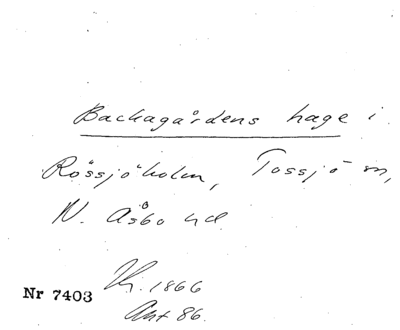 Backagårdens hage i
Rössjöholm, Tossjö sn,
N. Åsbo hd
Nr 7403
1866
Ant 86.